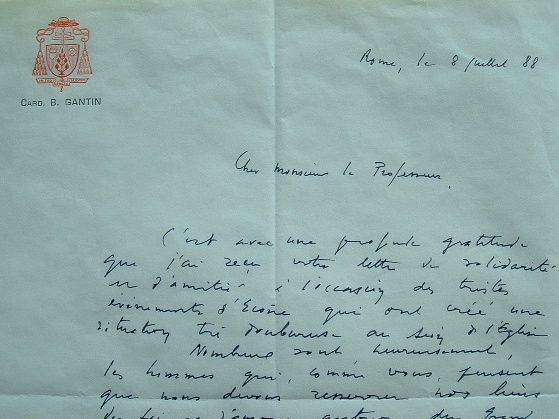 CARD. B. GANTIN
Rome, le 8 juillet 88
Cher Monsieur le Professeur,
C'est avec une profonde gratitude
que j'ai reçu votre lettre de solidarité
et d'amitié à l'occasion des tristes
évènements d'Ecône qui ont créé une
situation très douloureuse au sein de l'Eglise
Nombreux sont heureusement,
les hommes qui, comme vous, pensent
que nous devons resserrer nos liens
de foi et d'amour autour du